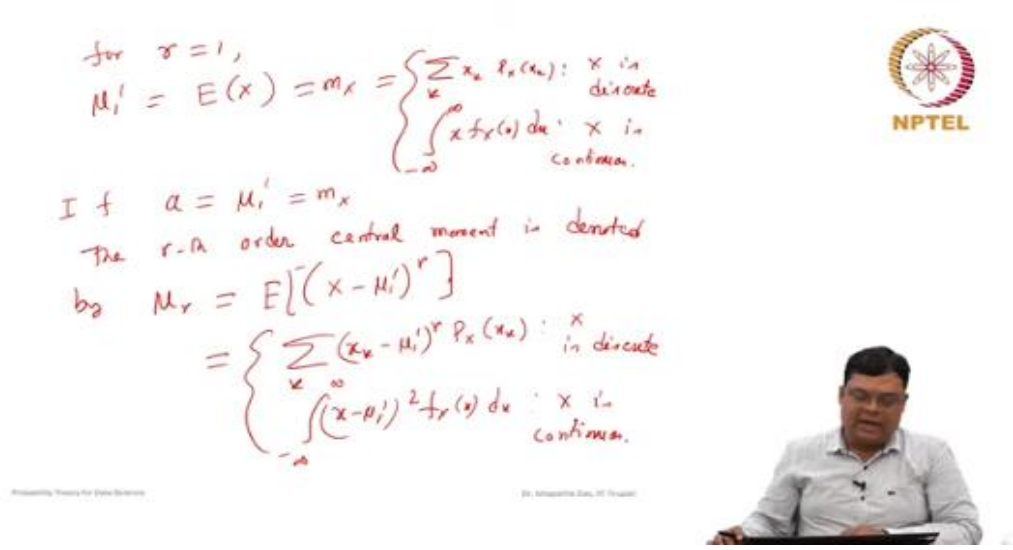 for r = 1,
μ₁' = E(X) = mₓ = { Σₖ xₖ Pₓ(xₖ) : X is discrete
∫_{-∞}^{∞} x fₓ(x) dx : X is continuous.
If a = μ₁' = mₓ
The r-th order central moment is denoted
by μᵣ = E[(X - μ₁')ʳ]
= { Σₖ (xₖ - μ₁')ʳ Pₓ(xₖ) : X is discrete
∫_{-∞}^{∞} (x - μ₁')² fₓ(x) dx : X is continuous.
NPTEL
Probability Theory for Data Science